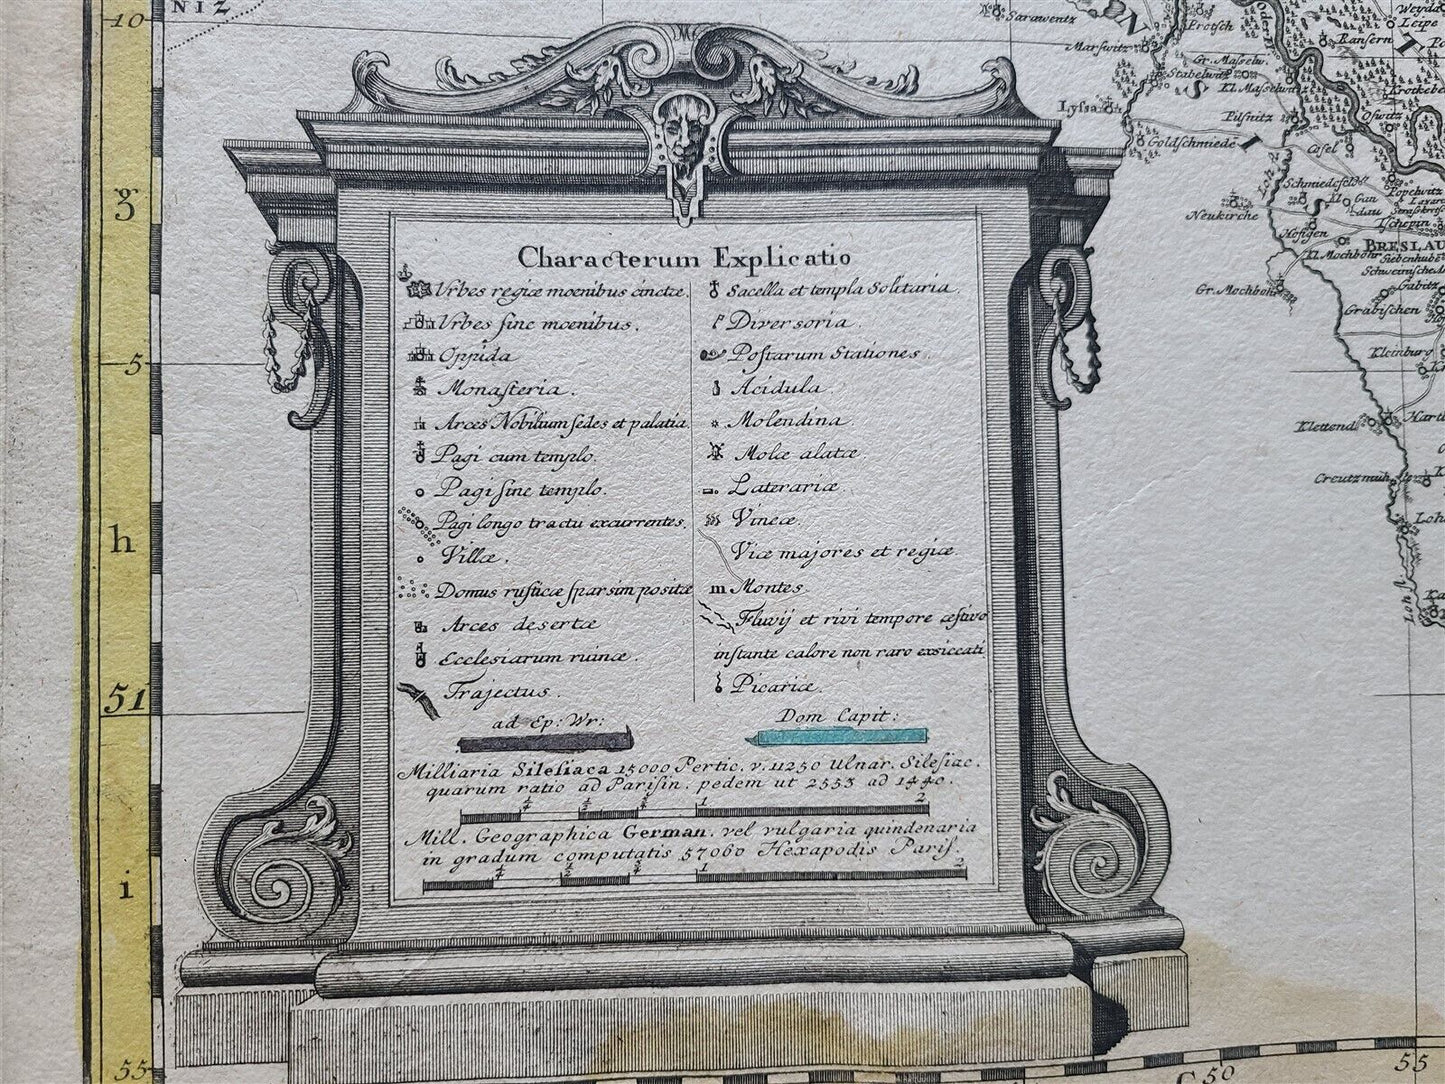 NIZ
10
g
5
h
51
i
55
Characterum Explicatio
Vrbes regiæ moenibus cinctæ.
Vrbes ſine moenibus.
Oppida
Monaſteria.
Arces Nobilium ſedes et palatia.
Pagi cum templo.
Pagi ſine templo.
Pagi longo tractu excurrentes.
Villæ.
Domus ruſticæ ſparsim positæ
Arces desertæ
Ecclesiarum ruinæ.
Trajectus.
Sacella et templa Solitaria.
Diversoria.
Poſtarum Stationes.
Acidula.
Molendina.
Molæ alatæ.
Laterariæ.
Vineæ.
Viæ majores et regiæ.
m Montes.
Fluvij et rivi tempore æſtivo
inſtante calore non raro exsiccati
Picariæ.
ad Ep: Wr:
Dom Capit:
Milliaria Sileſiaca 15000 Pertic. v. 11250 Ulnar. Sileſiac.
quarum ratio ad Pariſin. pedem ut 2553 ad 1440.
1/4 1/2 3/4 1 2
Mill. Geographica German. vel vulgaria quindenaria
in gradum computatis 57060 Hexapodis Pariſ.
1/4 1/2 3/4 1 2
Sarawentz
Protſch
Weyda
Leipe
Ranſern
Marſwitz
Gr. Maſſelw.
Stabelwitz
Kl. Maſſelwitz
Oder Fl
Lyſsa
Pilſnitz
Oſwitz
Goldſchmiede
Coſel
Loh fl.
Schmiedefeld
Kl Gan
dau
Popelwitz
Neukirche
Höfigen
Tſchepin
BRESLAU
Kl. Mochbohr
Siebenhube
Gr. Mochbohr
Gabitz
Gräbiſchen
Kleinburg
Klettend.
Hartl
Creutzmüh
Loh
Loh fl.
50
55